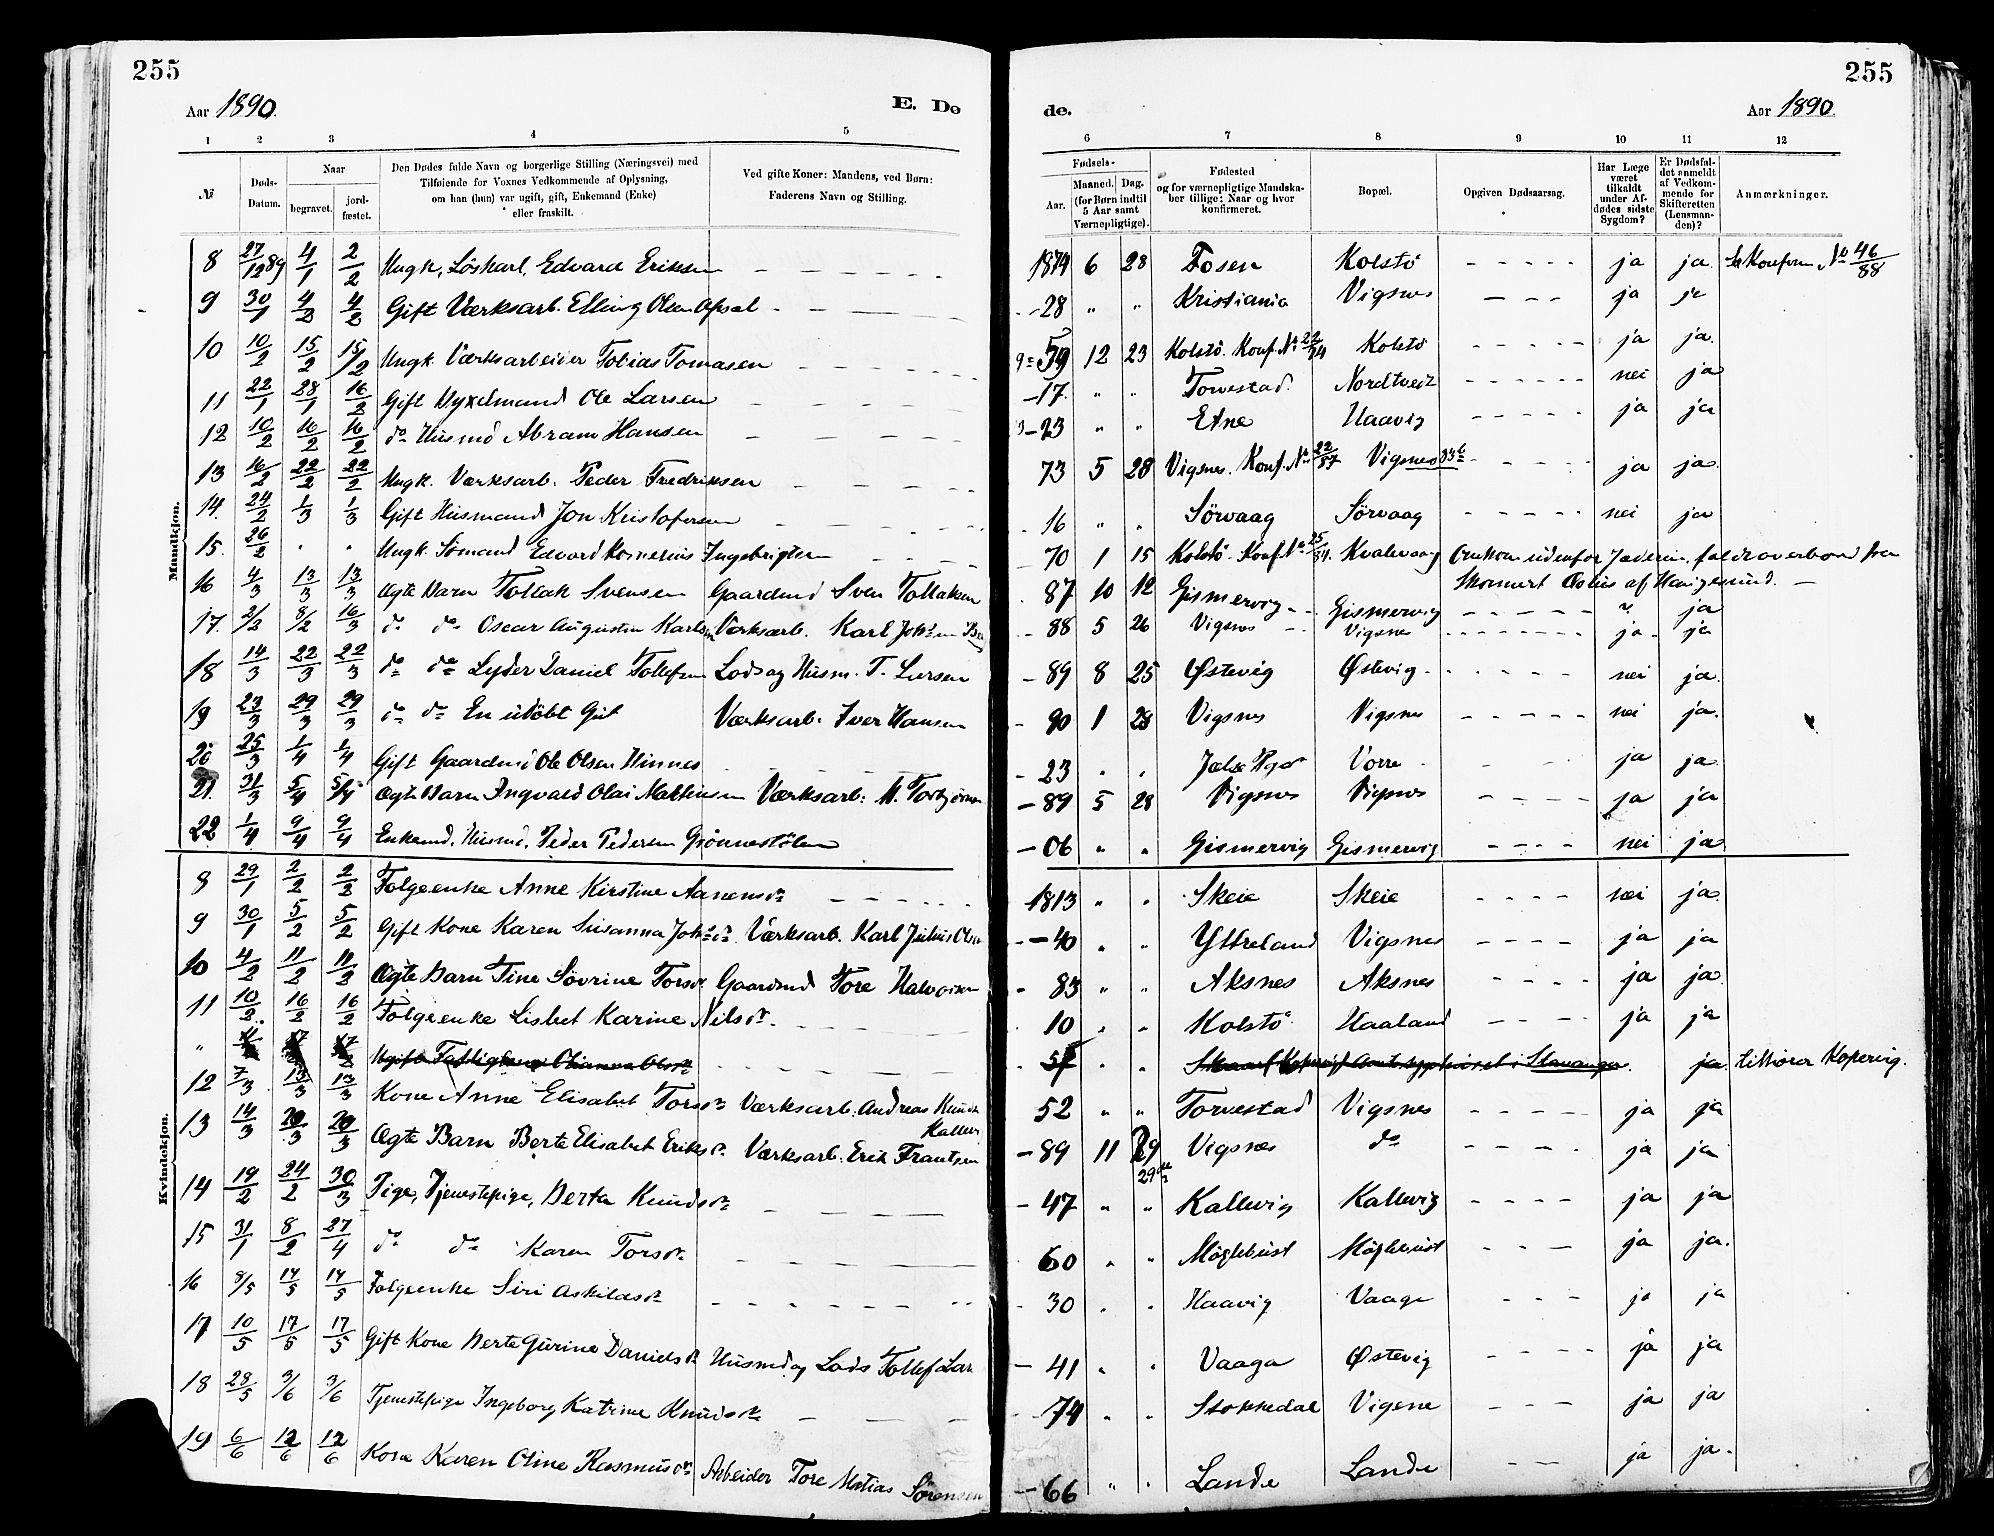 255
255
Aar 1890.
E. Dø
de.
Aar 1890.
1 2 3 4 5 6 7 8 9 10 11 12
№
Døds-Datum.
Naar
begravet.
jord-fæstet.
Den Dødes fulde Navn og borgerlige Stilling (Næringsvei) med
Tilføiende for Voxnes Vedkommende af Oplysning,
om han (hun) var ugift, gift, Enkemand (Enke)
eller fraskilt.
Ved gifte Koner: Mandens, ved Børn:
Faderens Navn og Stilling.
Fødsels-
Aar.
Maaned. Dag.
(for Børn indtil
5 Aar samt
Værnepligtige).
Fødested
og for værnepligtige Mandska-
ber tillige: Naar og hvor
konfirmeret.
Bopæl.
Opgiven Dødsaarsag.
Har Læge
været
tilkaldt
under Af-
dødes sidste
Sygdom?
Er Dødsfal-
det anmeldt
af Vedkom-
mende for
Skifteretten
(Lensman-
den)?
Anmærkninger.
Mandkjøn.
8 27/12 89 4/1 2/2 Ungk. Löskarl, Edvard Eriksen 1874 6 28 Fosen Kolstö ja ja. No 46/88
9 30/1 4/2 4/2 Gift Værksarb. Elling Olsen 28 " " Kristiania Vigsnes ja ja
10 10/2 15/2 15/2 Ungk. Værksarbeider Tobias Tomasen 59 12 23 Kolstö. Konf. No 22/74 Kolstö ja ja.
11 22/1 28/1 16/2 Gift Ole Larsen 17. " " Torvestad. Nordtveit nei ja
12 10/2 16/2 16/2 do Husmd Abram Hansen 23 " " Etne Haavig ja ja
13 16/2 22/2 22/2 Ungk. Værksarb. Peder Fredriksen 73 5 28 Vigsnes. Konf. No 22/87 Vigsnes ja ja.
14. 24/2 1/3 1/3 Gift Husmand Jon Kristofersen 16 " " Sörvaag Sörvaag nei ja
15. 26/2 " " Ungk. Sömand Edvard Kornelius Ingebrigtsen 70 1 15 Kolstö. Konf. No Kvalevaag Omkom udenfor Jæderen, faldt overbord fra
Skonnert Æolus af Haugesund.
16 4/3 13/3 13/3 Ægte Barn Tollak Svensen Gaardmd Sven Tollaksen 87 10 12 Gismervig Gismervig ? ja
17. 2/2 8/2 16/3 do do Oscar Augustin Karlsen Værksarb. Karl 88 5 26 Vigsnes Vigsnes ja. ja
18 14/3 22/3 22/3 do do Lyder Daniel Tollefsen Lods og Husm. T. Larsen 89 8 25 Østevig Østevig nei ja.
19 23/3 29/3 29/3 do do En udöbt Gut Værksarb. Iver Hansen 90 1 28 Vigsnes Vigsnes nei ja.
20 25/3 1/4 1/4 Gift Gaardmd Ole Olsen Hinnes 23 " " Vorre ja ja.
21. 31/3 5/4 5/4 Ægte Barn Ingvald Olai Mathiesen Værksarb: M. Torbjörnsen 89 5 28 Vigsnes Vigsnes ja ja
22 1/4 9/4 9/4 Enkemd. Husmd. Peder Pedersen Grönnestölen 06 " " Gismervig Gismervig nei ja
Kvindekjøn.
8 29/1 2/2 2/2 Folgeenke Anne Kirstine Aanensdr 1813 " " Skeie Skeie nei ja.
9 30/1 5/2 5/2 Gift Kone Karen Susanna Værksarb. Karl Julius Olsen 40 " " Ytreland Vigsnes ja ja
10 4/2 11/2 11/2 Ægte Barn Tine Sövrine Torsdr Gaardmd Tore Halvorsen 83 " " Aksnes Aksnes ja ja.
11 10/2. 16/2 16/2 Folgeenke Lisbet Karine Nilsdr. 10 " " Kolstö Haaland ja ja
" Ugift Olsdr 57 " " i Stavanger ja. tilhörer Kopervig.
12 7/3 13/3 13/3 Kone Anne Elisabet Torsdr Værksarb. Andreas 52 " " Torvestad Vigsnes ja ja
13 14/3 20/3 20/3 Ægte Barn Berte Elisabet Eriksdr. Værksarb. Erik Frantsen 89 11 29 Vigsnes do ja ja
14 19/2 24/2 30/3 Pige, Tjenestepige, Berta Knudsdr 47 " " Kallevig Kallevig ja ja
15 31/1 8/2 27/4 do do Karen Torsdr. 60 " " Möglebust Möglebust ja ja.
16 8/5 14/5 14/5 Folgeenke Siri Askildsdr 30 " " Haavig Vaage ja ja
17 10/5 17/5 17/5 Gift Kone Berte Gurine Danielsdr Husmd og Lods Tollef Lar 41 " " Vaaga Østevig ja ja
18 28/5 3/6 3/6 Tjenestepige Ingeborg Katrine Knudsdr 74 " " Stokkedal Vigsne ja ja
19 6/6 12/6 12/6 Kone Karen Oline Rasmusdr Arbeider Tore Matias Sörensen 66 " " Lande Lande ja ja.